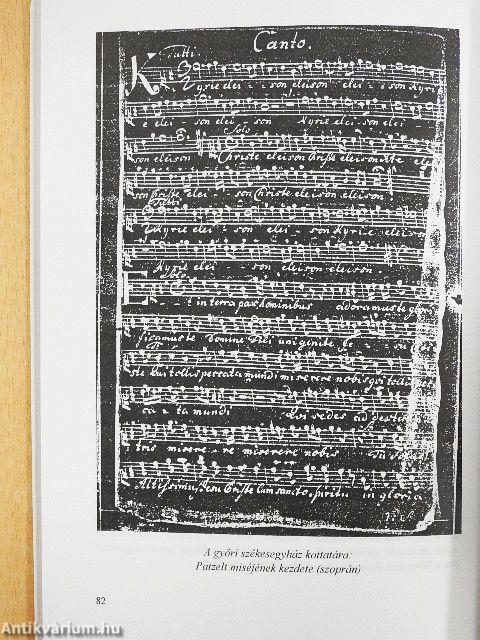 Canto.
Tutti.
Kyrie elei - - son eleison elei - - son Kyri
e elei son elei - son Kyrie elei - son
Solo
son eleison Christe eleison Christe elei
son Christe elei - son Christe eleison eleison
Tutti
Kyrie elei - son elei - - son Kyrie eleison
Kyrie elei - son eleison eleison
Solo
Et in terra pax hominibus adoramus te glo
ficamus te Domine Fili unigenite Je su
ste qui tollis peccata mundi miserere nobis qui tollis
ca - ta mundi Qui sedes ad dexte
tris misere - re miserere nobis
Altissimus Jesu Christe Cum sancto spiritu in gloria
A győri székesegyház kottatára:
Patzelt miséjének kezdete (szoprán)
82
Antikvárium.hu